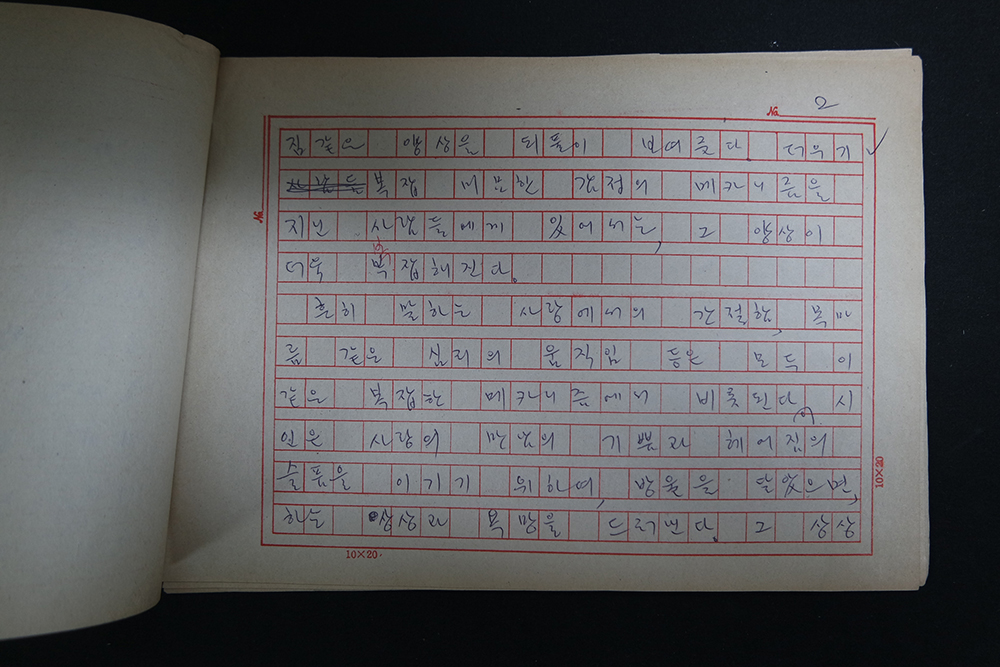 No. 2
짐같은 행상을 되풀이 보여준다. 더우기
복잡 미묘한 감정의 메카니즘을
지닌 사람들에게 있어서는, 그 양상이
더욱 복잡해진다.
흔히 말하는 사랑에서의 간절함, 목마
름 같은 심리의 움직임 등은 모두 이
같은 복잡한 메카니즘에서 비롯된다. 시
인은 사랑의 만남의 기쁨과 헤어짐의
슬픔을 이기기 위하여, 방울을 달았으면,
하는 상상과 욕망을 드러낸다. 그 상상
No.
10×20
10×20